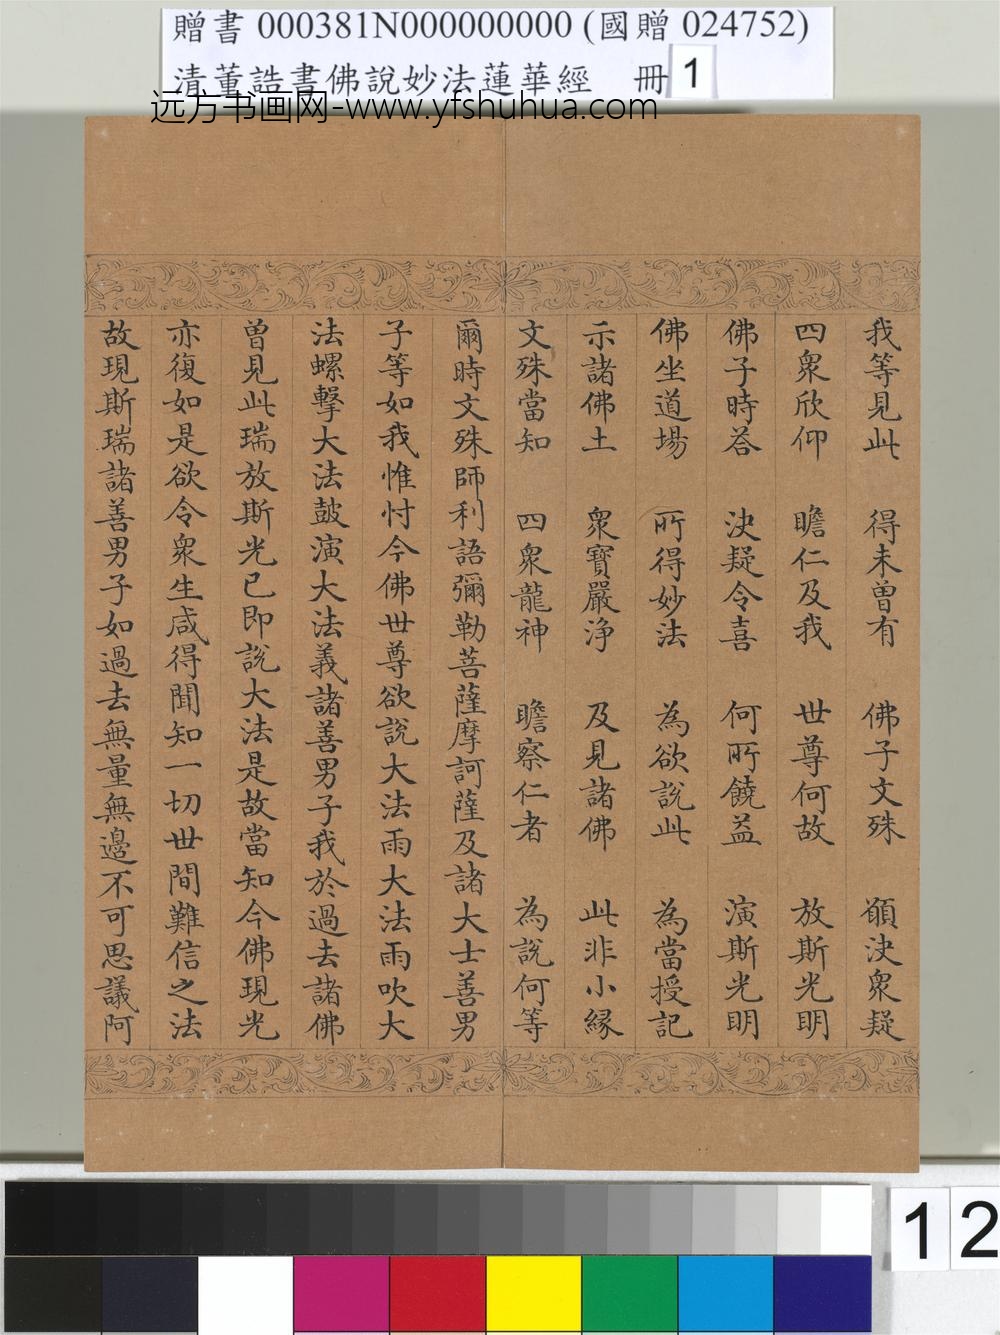 贈書 000381N000000000 (國贈 024752)
清董誥書佛說妙法蓮華經 冊 1
远方书画网-www.yfshuhua.com
我等見此 得未曾有 佛子文殊 願決眾疑
四眾欣仰 瞻仁及我 世尊何故 放斯光明
佛子時答 決疑令喜 何所饒益 演斯光明
佛坐道場 所得妙法 為欲說此 為當授記
示諸佛土 眾寶嚴淨 及見諸佛 此非小緣
文殊當知 四眾龍神 瞻察仁者 為說何等
爾時文殊師利語彌勒菩薩摩訶薩及諸大士善男
子等如我惟忖今佛世尊欲說大法雨大法雨吹大
法螺擊大法鼓演大法義諸善男子我於過去諸佛
曾見此瑞放斯光已即說大法是故當知今佛現光
亦復如是欲令眾生咸得聞知一切世間難信之法
故現斯瑞諸善男子如過去無量無邊不可思議阿
12